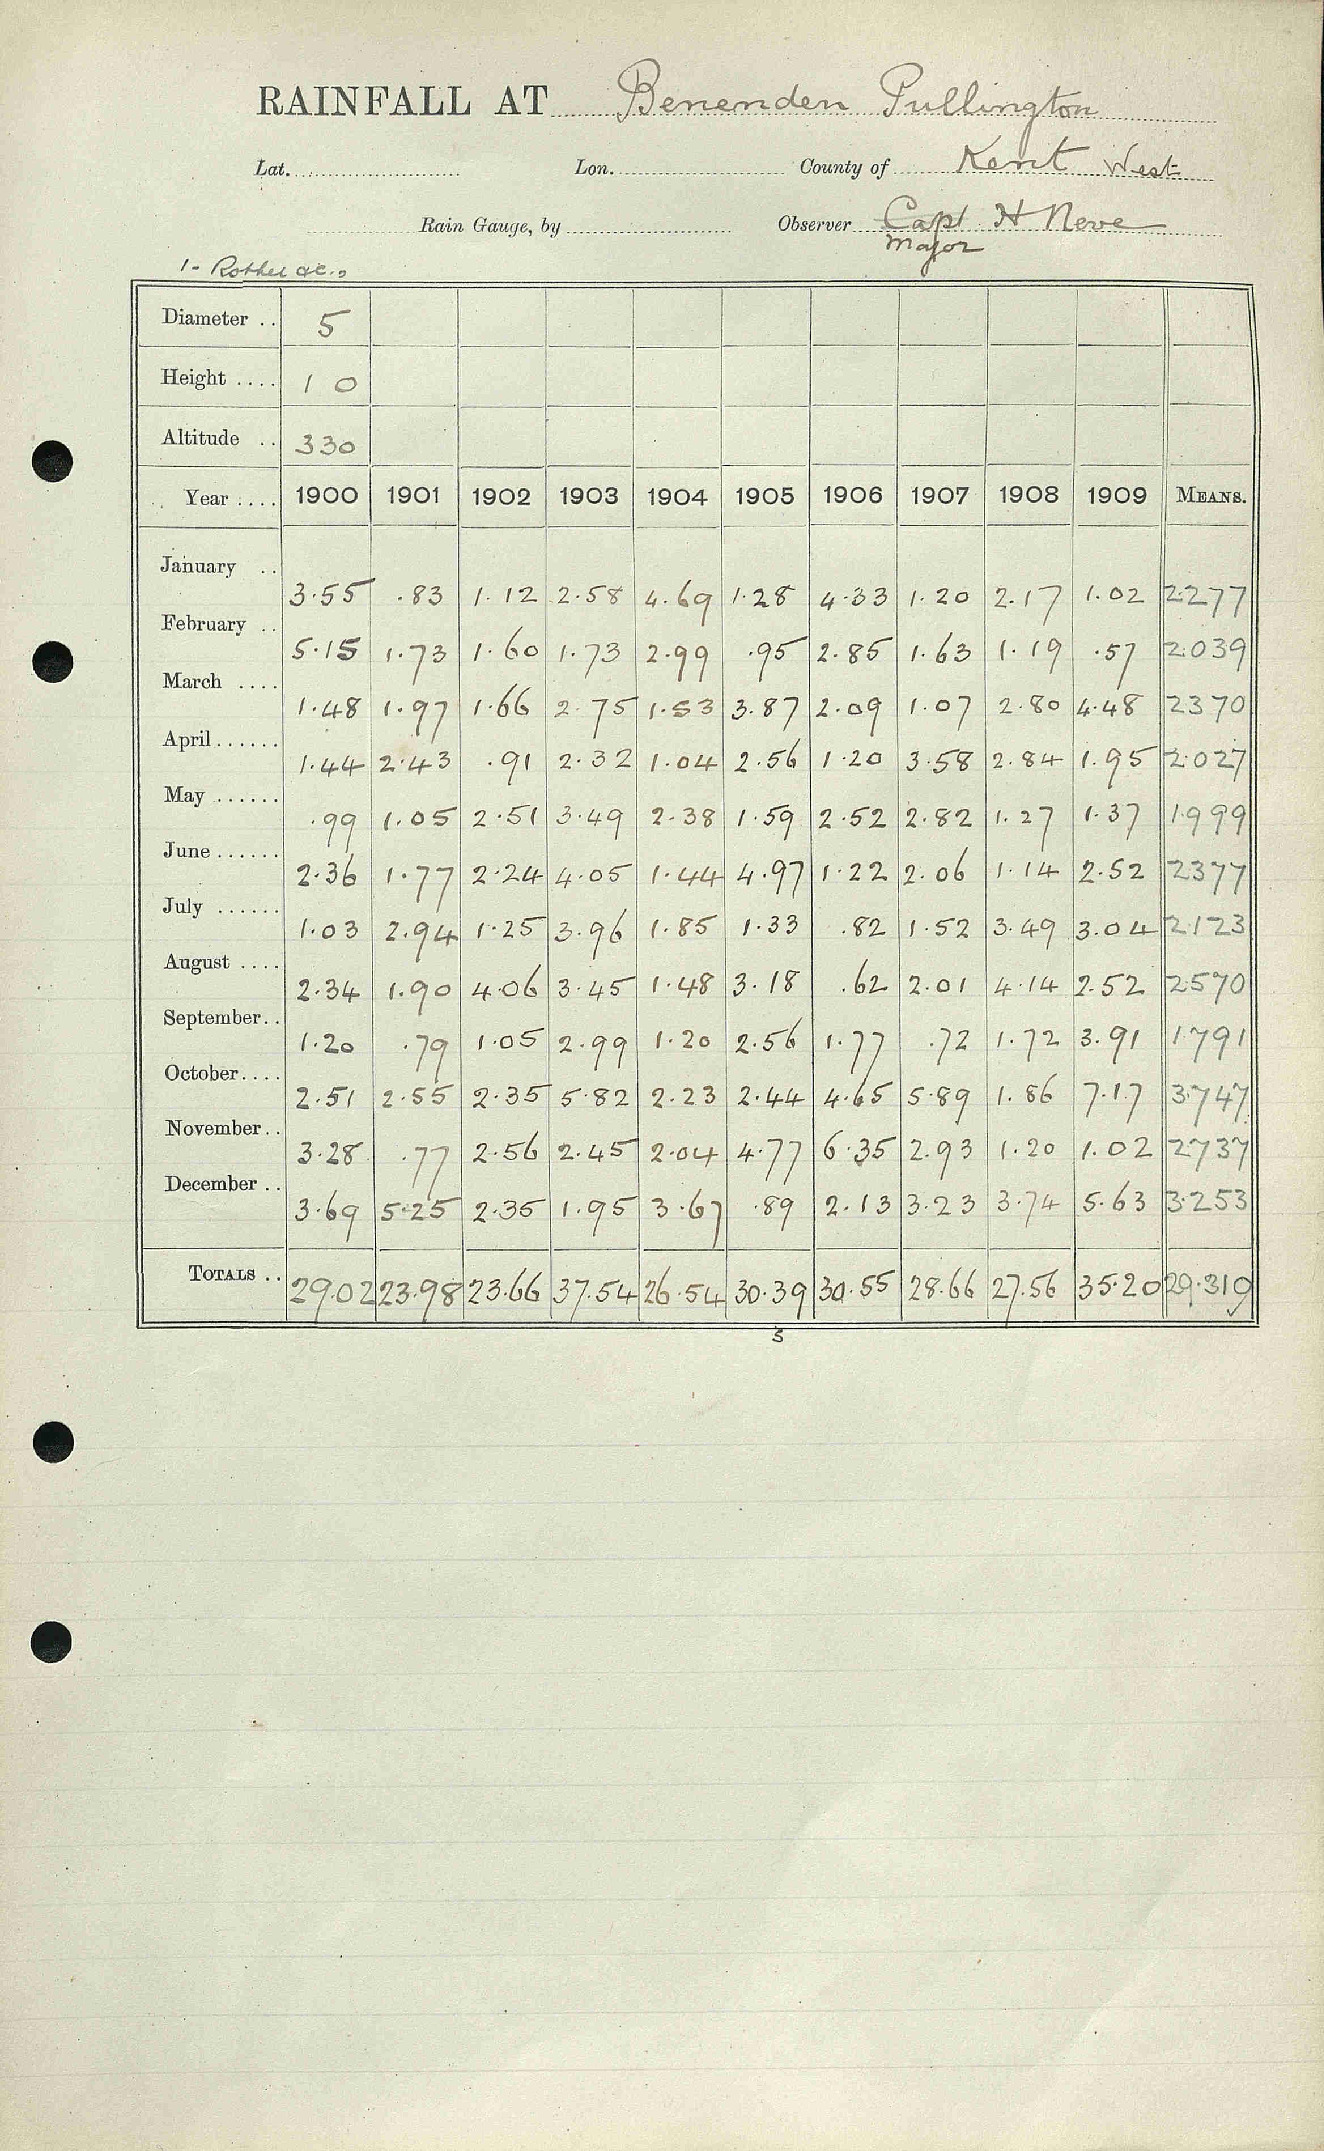 RAINFALL AT Benenden Pullington
Lat. Lon. County of Kent West
Rain Gauge, by Observer Capt H Neve
Major
1- Rother &c.,
Diameter .. 5
Height .... 1 0
Altitude .. 330
Year .... 1900 1901 1902 1903 1904 1905 1906 1907 1908 1909 MEANS.
January .. 3.55 .83 1.12 2.58 4.69 1.28 4.33 1.20 2.17 1.02 2.277
February .. 5.15 1.73 1.60 1.73 2.99 .95 2.85 1.63 1.19 .57 2.039
March .... 1.48 1.97 1.66 2.75 1.53 3.87 2.09 1.07 2.80 4.48 2370
April ...... 1.44 2.43 .91 2.32 1.04 2.56 1.20 3.58 2.84 1.95 2.027
May ...... .99 1.05 2.51 3.49 2.38 1.59 2.52 2.82 1.27 1.37 1.999
June ...... 2.36 1.77 2.24 4.05 1.44 4.97 1.22 2.06 1.14 2.52 2377
July ...... 1.03 2.94 1.25 3.96 1.85 1.33 .82 1.52 3.49 3.04 2.123
August .... 2.34 1.90 4.06 3.45 1.48 3.18 .62 2.01 4.14 2.52 2.570
September.. 1.20 .79 1.05 2.99 1.20 2.56 1.77 .72 1.72 3.91 1.791
October.... 2.51 2.55 2.35 5.82 2.23 2.44 4.65 5.89 1.86 7.17 3.747
November.. 3.28 .77 2.56 2.45 2.04 4.77 6.35 2.93 1.20 1.02 2737
December .. 3.69 5.25 2.35 1.95 3.67 .89 2.13 3.23 3.74 5.63 3.253
TOTALS .. 29.02 23.98 23.66 37.54 26.54 30.39 30.55 28.66 27.56 35.20 29.310
3